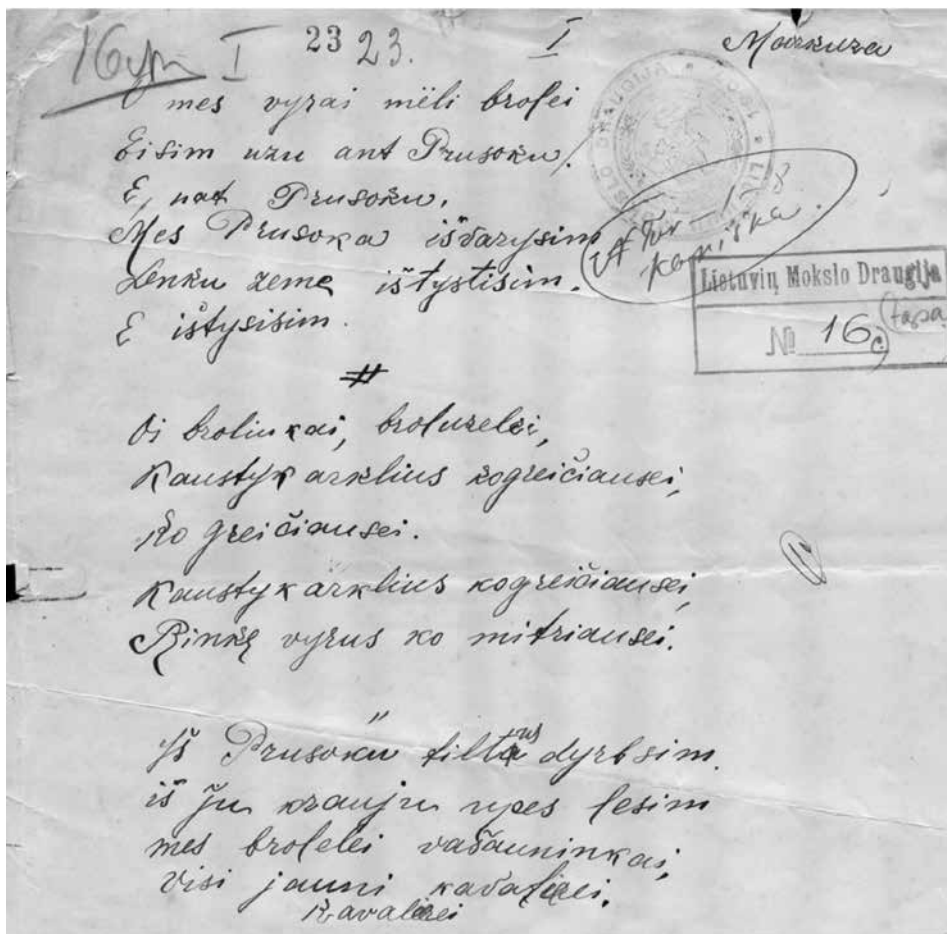 I 23 23. I
mes vyrai mėli brolei
Eisim uzu ant Prusoku.
E, nat Prusoku.
Mes Prusoka išvarysim
Lenku zeme ištystisim.
E ištysisim.
Lietuvių Mokslo Draugija
№ 16 c)
Oi broliukai, broluzelei,
Kaustyk arklius kogreičiausei,
ko greičiausei.
Kaustyk arklius kogreičiausei,
Rinkę vyrus ko mitriausei.
Iš Prusoku tiltus dyrbsim.
iš ju krauju upes lesim
mes brolelei vašauninkai,
visi jauni kavalerei.
Kavalerei